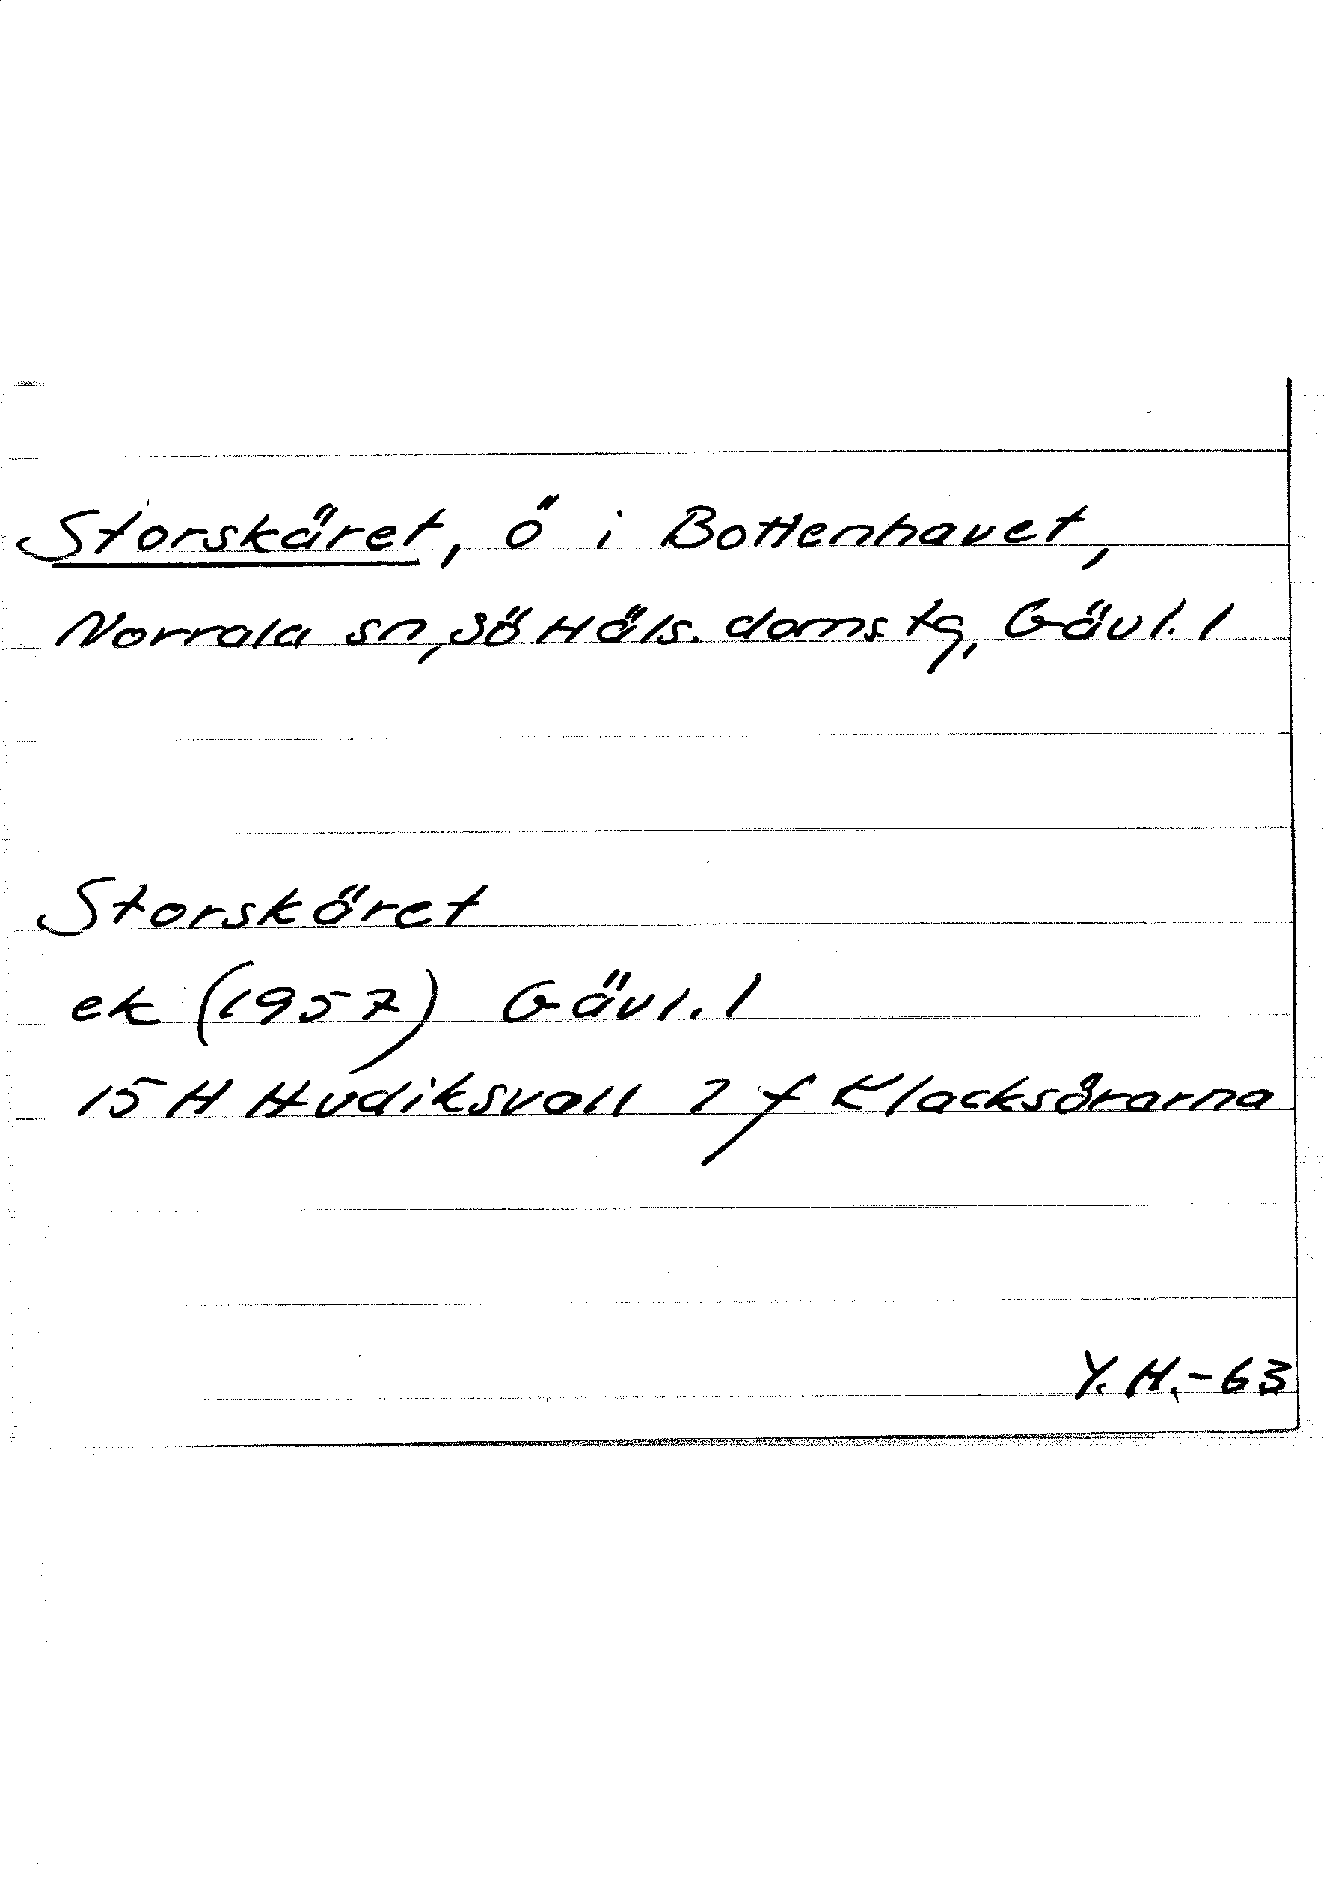 Storskäret, ö i Bottenhavet,
Norrala sn, Sö Häls. doms tg, Gävl. l
Storskäret
ek (1957) Gävl. l
15 H Hudiksvall 7 f Klacksörarna
Y. H. - 63